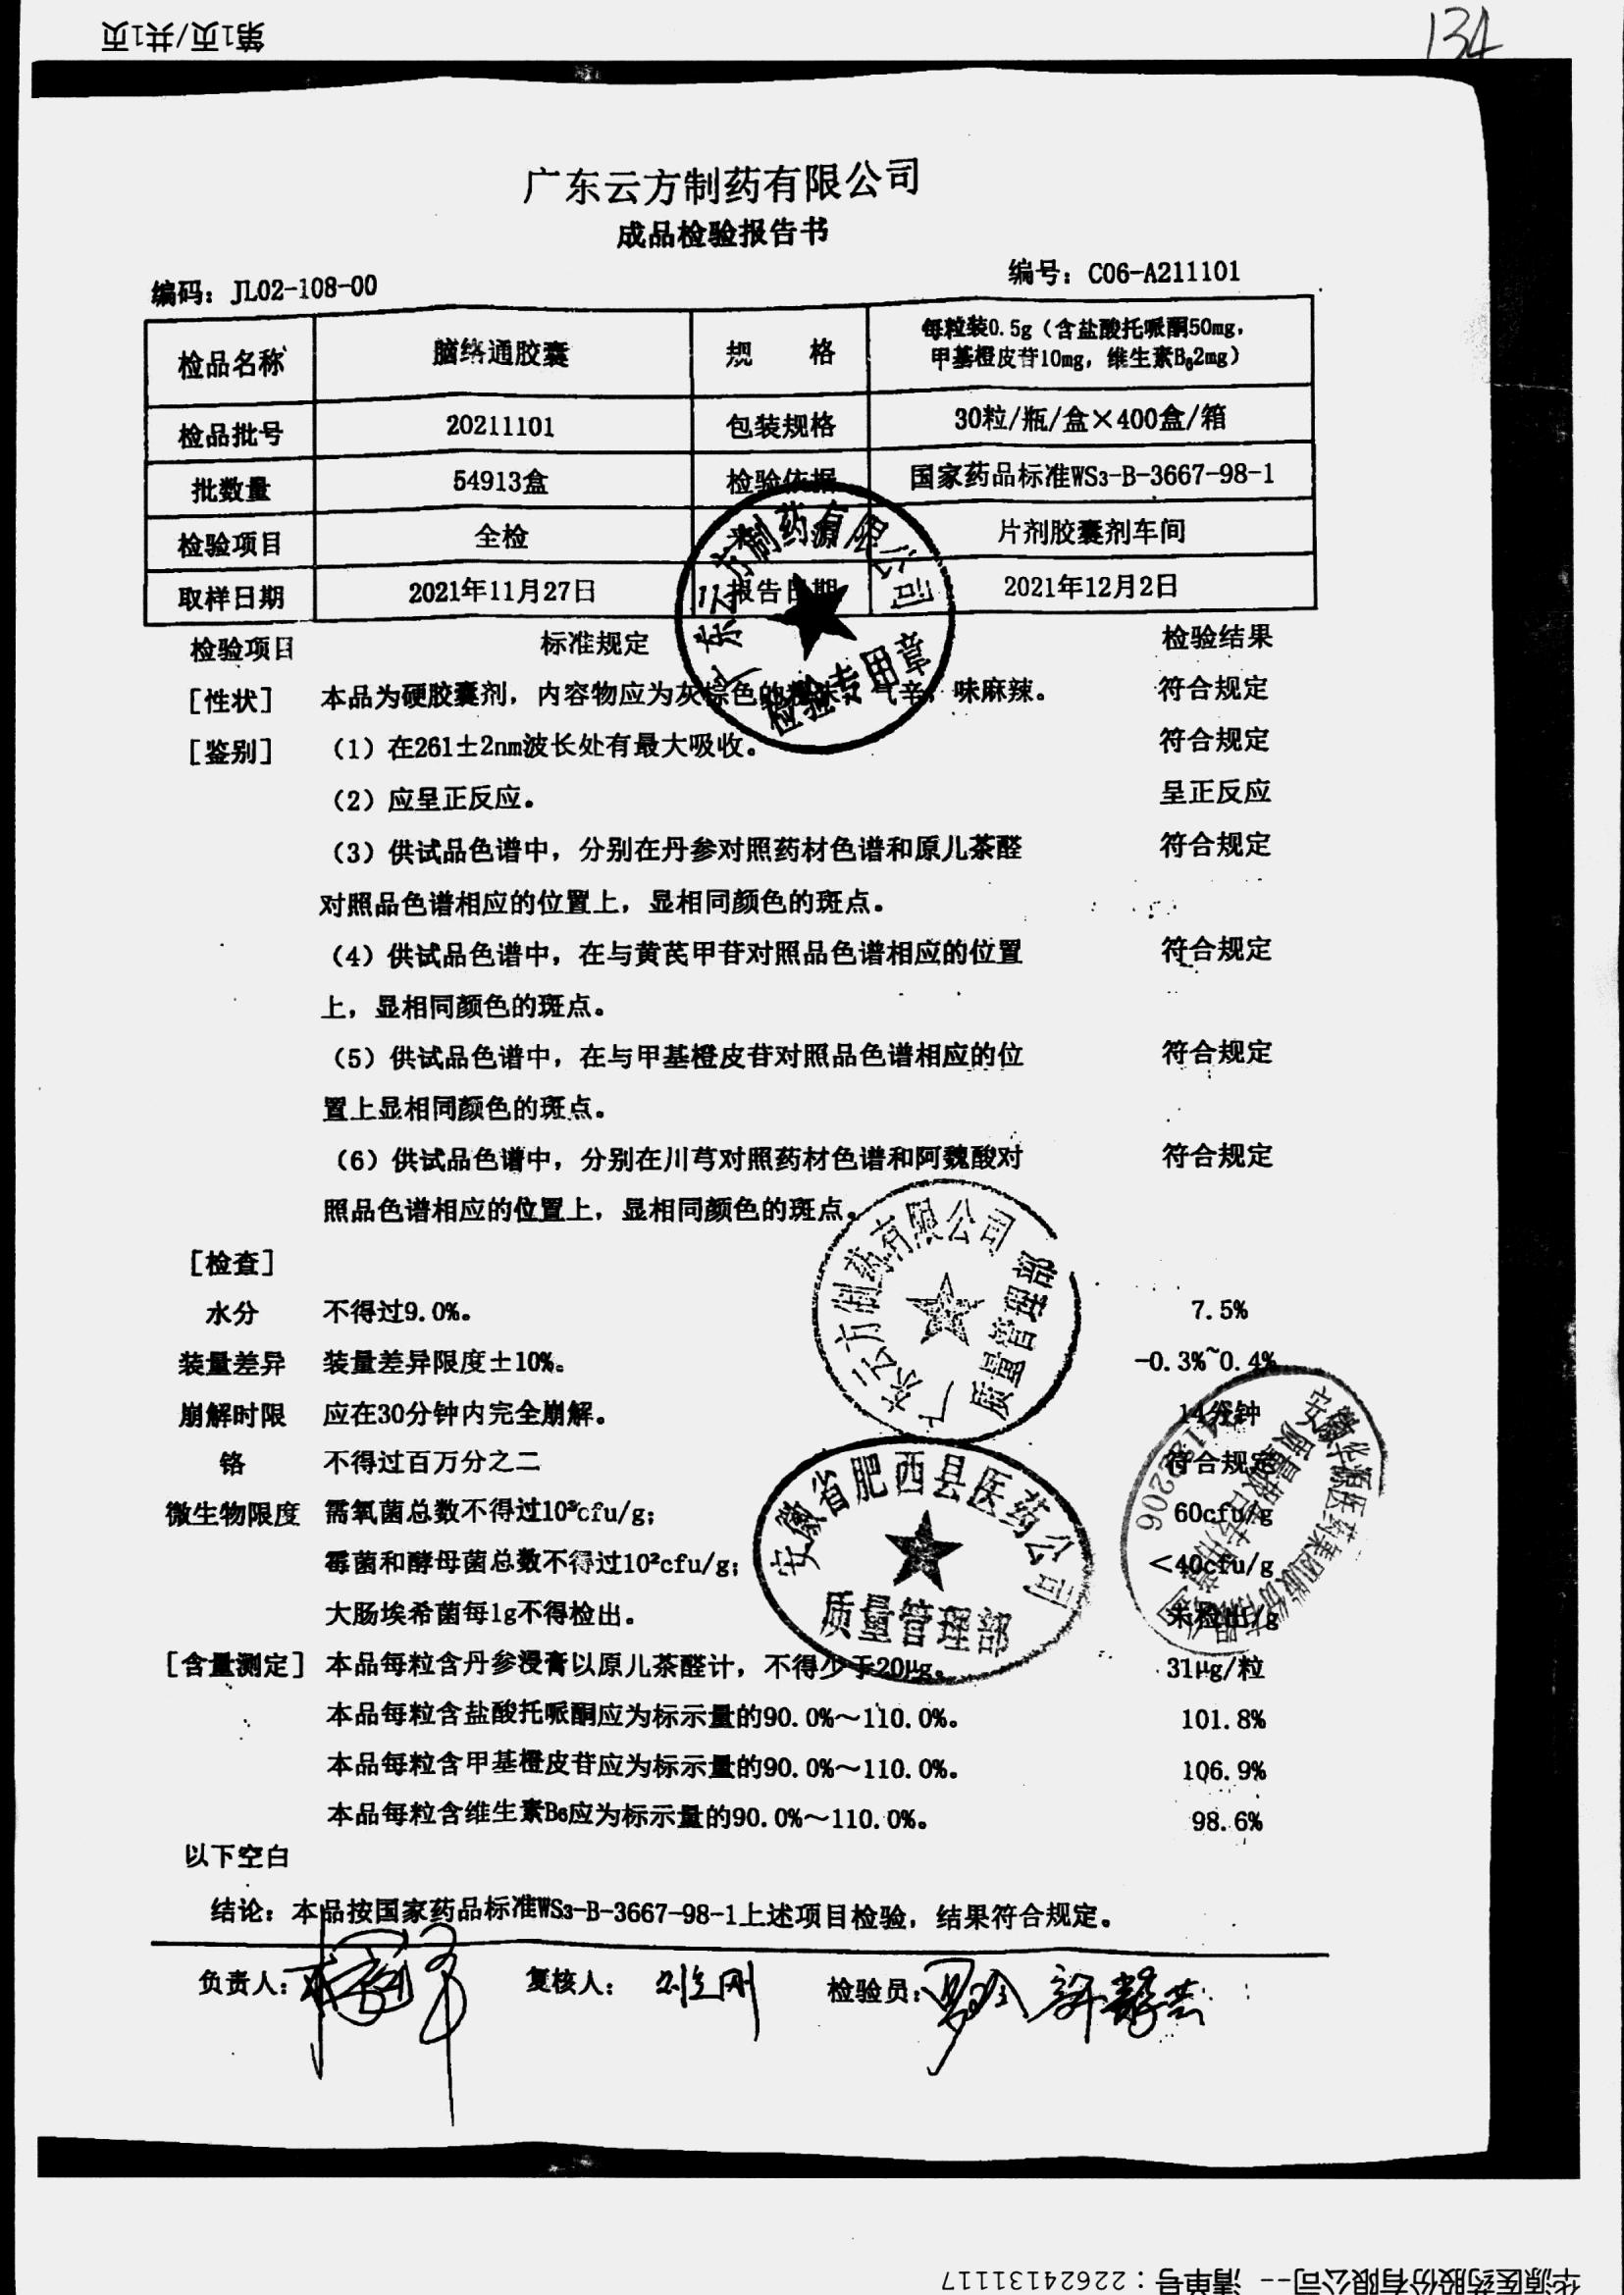 第1页/共1页
134
广东云方制药有限公司
成品检验报告书
编码：JL02-108-00
编号：C06-A211101
检品名称 脑络通胶囊 规 格 每粒装0.5g（含盐酸托哌酮50mg，
甲基橙皮苷10mg，维生素B₆2mg）
检品批号 20211101 包装规格 30粒/瓶/盒×400盒/箱
批数量 54913盒 检验依据 国家药品标准WS₃-B-3667-98-1
检验项目 全检 源 片剂胶囊剂车间
取样日期 2021年11月27日 报告日期 2021年12月2日
广东云方制药有限公司
检验专用章
检验项目 标准规定 检验结果
[性状] 本品为硬胶囊剂，内容物应为灰棕色的粉末；气辛，味麻辣。 符合规定
[鉴别] （1）在261±2nm波长处有最大吸收。 符合规定
（2）应呈正反应。 呈正反应
（3）供试品色谱中，分别在丹参对照药材色谱和原儿茶醛 符合规定
对照品色谱相应的位置上，显相同颜色的斑点。
（4）供试品色谱中，在与黄芪甲苷对照品色谱相应的位置 符合规定
上，显相同颜色的斑点。
（5）供试品色谱中，在与甲基橙皮苷对照品色谱相应的位 符合规定
置上显相同颜色的斑点。
（6）供试品色谱中，分别在川芎对照药材色谱和阿魏酸对 符合规定
照品色谱相应的位置上，显相同颜色的斑点。
[检查]
水分 不得过9.0%。 7.5%
装量差异 装量差异限度±10%。 -0.3%~0.4%
崩解时限 应在30分钟内完全崩解。 14分钟
铬 不得过百万分之二 符合规定
微生物限度 需氧菌总数不得过10³cfu/g； 60cfu/g
霉菌和酵母菌总数不得过10²cfu/g； <40cfu/g
大肠埃希菌每1g不得检出。 未检出/g
广东云方制药有限公司
质量管理部
安徽省肥西县医药公司
质量管理部
安徽华源医药集团股份有限公司
[含量测定] 本品每粒含丹参浸膏以原儿茶醛计，不得少于20μg。 31μg/粒
本品每粒含盐酸托哌酮应为标示量的90.0%～110.0%。 101.8%
本品每粒含甲基橙皮苷应为标示量的90.0%～110.0%。 106.9%
本品每粒含维生素B₆应为标示量的90.0%～110.0%。 98.6%
以下空白
结论：本品按国家药品标准WS₃-B-3667-98-1上述项目检验，结果符合规定。
负责人： 复核人： 检验员：
华源医药股份有限公司-- 清单号：22624131117